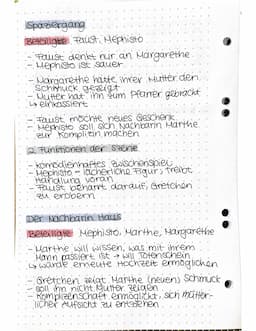 Spaziergang
Beteiligte: Faust, Mephisto
- Faust denkt nur an Margarethe
- Mephisto ist sauer
- Margarethe hatte ihrer Mutter den
Schmuck gezeigt
- Mutter hat ihn zum Pfarrer gebracht
↳ einkassiert
- Faust möchte neues Geschenk
- Mephisto soll sich Nachbarin Marthe
zur Komplizin machen
2 Funktionen der Szene
- komödienhaftes Zwischenspiel
- Mephisto = lächerliche Figur, treibt
Handlung voran
- Faust beharrt darauf, Gretchen
zu erobern
Der Nachbarin Haus
Beteiligte: Mephisto, Marthe, Margarethe
- Marthe will wissen, was mit ihrem
Mann passiert ist → will Totenschein
↳ würde erneute Hochzeit ermöglichen
- Gretchen zeigt Marthe (neuen) Schmuck
- soll ihn nicht Mutter zeigen
- Komplizenschaft ermöglicht, sich mütter-
licher Aufsicht zu entziehen